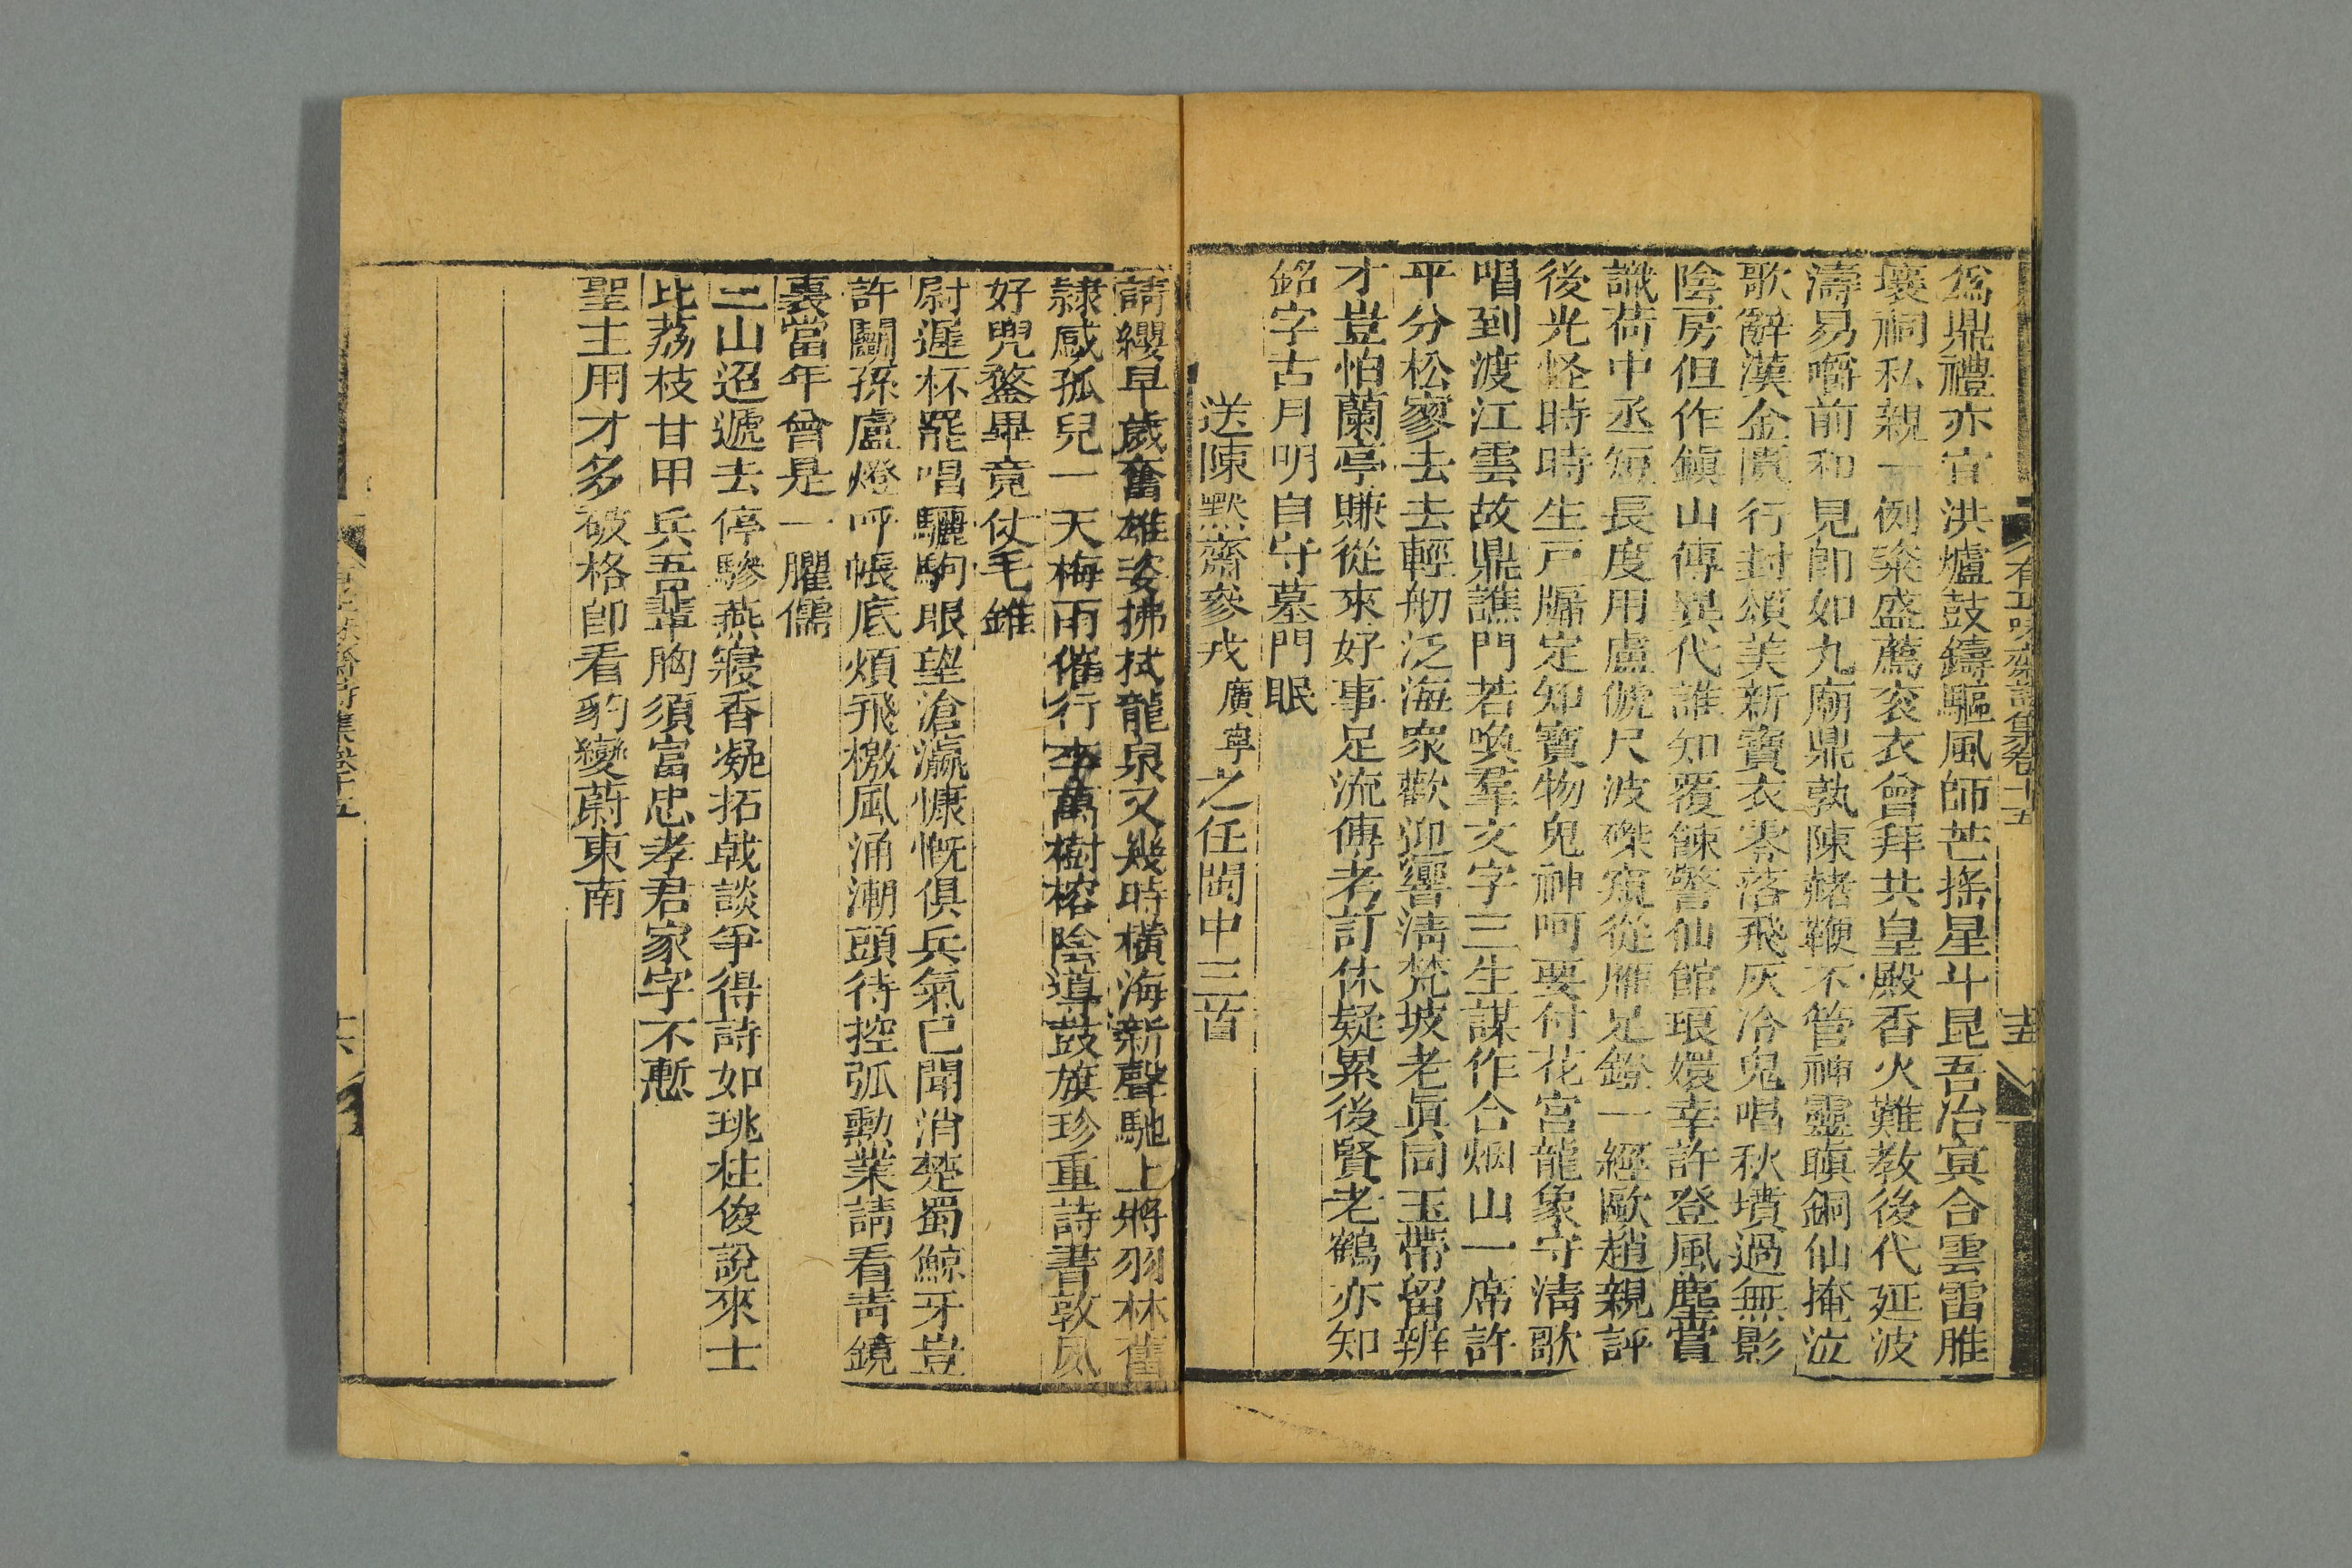 有正味齋詩集卷十五
十五
爲鼎禮亦宜洪爐鼓鑄驅風師芒搖星斗昆吾冶寘合雲雷脽
壤祠私親一例粢盛薦衮衣曾拜共皇殿香火難教後代延波
濤易嚼前和見卽如九廟鼎孰陳赭鞭不管神靈瞋銅仙掩泣
歌辭漢金匱行封頌美新寶衣零落飛灰冷鬼唱秋墳過無影
陰房但作鎭山傳異代誰知覆餗警仙館琅嬛幸許登風塵賞
識荷中丞短長度用盧俿尺波磔窺從雁足鐙一經歐趙親評
後光怪時時生戸牖定知寶物鬼神呵要付花宮龍象守淸歌
唱到渡江雲故鼎譙門若喚羣文字三生謀作合烟山一席許
平分松寥去去輕舠泛海衆歡迎響淸梵坡老眞同玉帶留辨
才豈怕蘭亭賺從來好事足流傳考訂休疑累後賢老鶴亦知
銘字古月明自守墓門眠
送陳默齋參戎廣寧之任閩中三首
請纓早歲奮雄姿拂拭龍泉又幾時橫海新聲馳上將羽林舊
隷感孤兒一天梅雨催行李萬樹榕陰導鼓旗珍重詩書敦夙
好兜鍪畢竟仗毛錐
尉遲杯罷唱驪駒眼望滄瀛慷慨俱兵氣已聞消楚蜀鯨牙豈
許鬭孫盧燈呼帳底煩飛檄風涌潮頭待控弧勲業請看靑鏡
裏當年曾是一臞儒
三山迢遞去停驂燕寢香凝拓戟談爭得詩如珧柱俊說來士
比荔枝甘甲兵吾輩胸須富忠孝君家字不慙
聖主用才多破格卽看豹變蔚東南
有正味齋詩集卷十五
十六